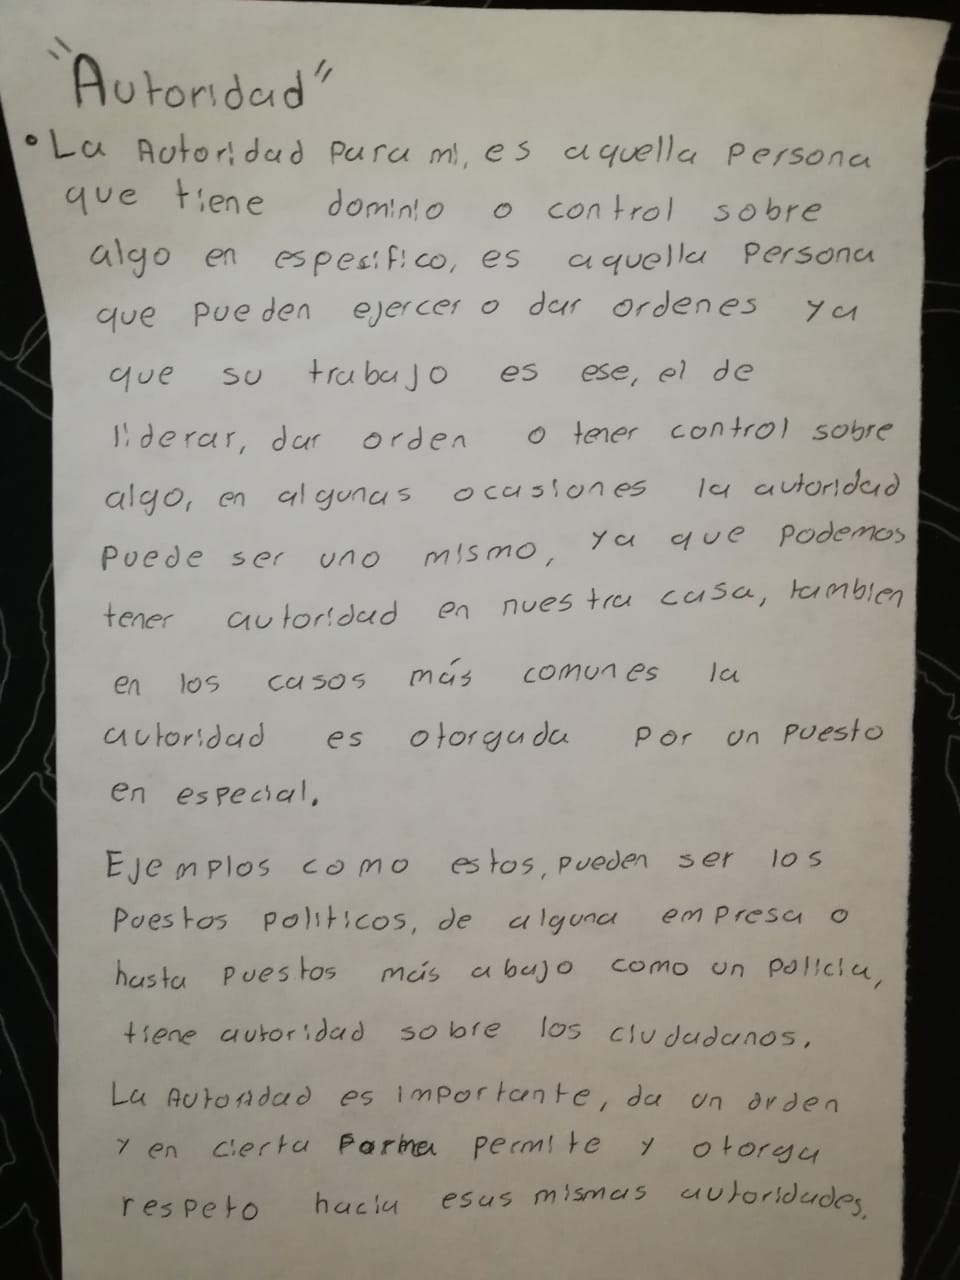 "Autoridad"
• La Autoridad para mi, es aquella persona
que tiene dominio o control sobre
algo en espesifico, es aquella persona
que pueden ejercer o dar ordenes ya
que su trabajo es ese, el de
liderar, dar orden o tener control sobre
algo, en algunas ocasiones la autoridad
puede ser uno mismo, ya que podemos
tener autoridad en nuestra casa, tambien
en los casos más comunes la
autoridad es otorgada por un puesto
en especial.
Ejemplos como estos, pueden ser los
puestos politicos, de alguna empresa o
hasta puestos más abajo como un policia,
tiene autoridad sobre los ciudadanos.
La Autoridad es importante, da un orden
y en cierta Forma permite y otorga
respeto hacia esas mismas autoridades.